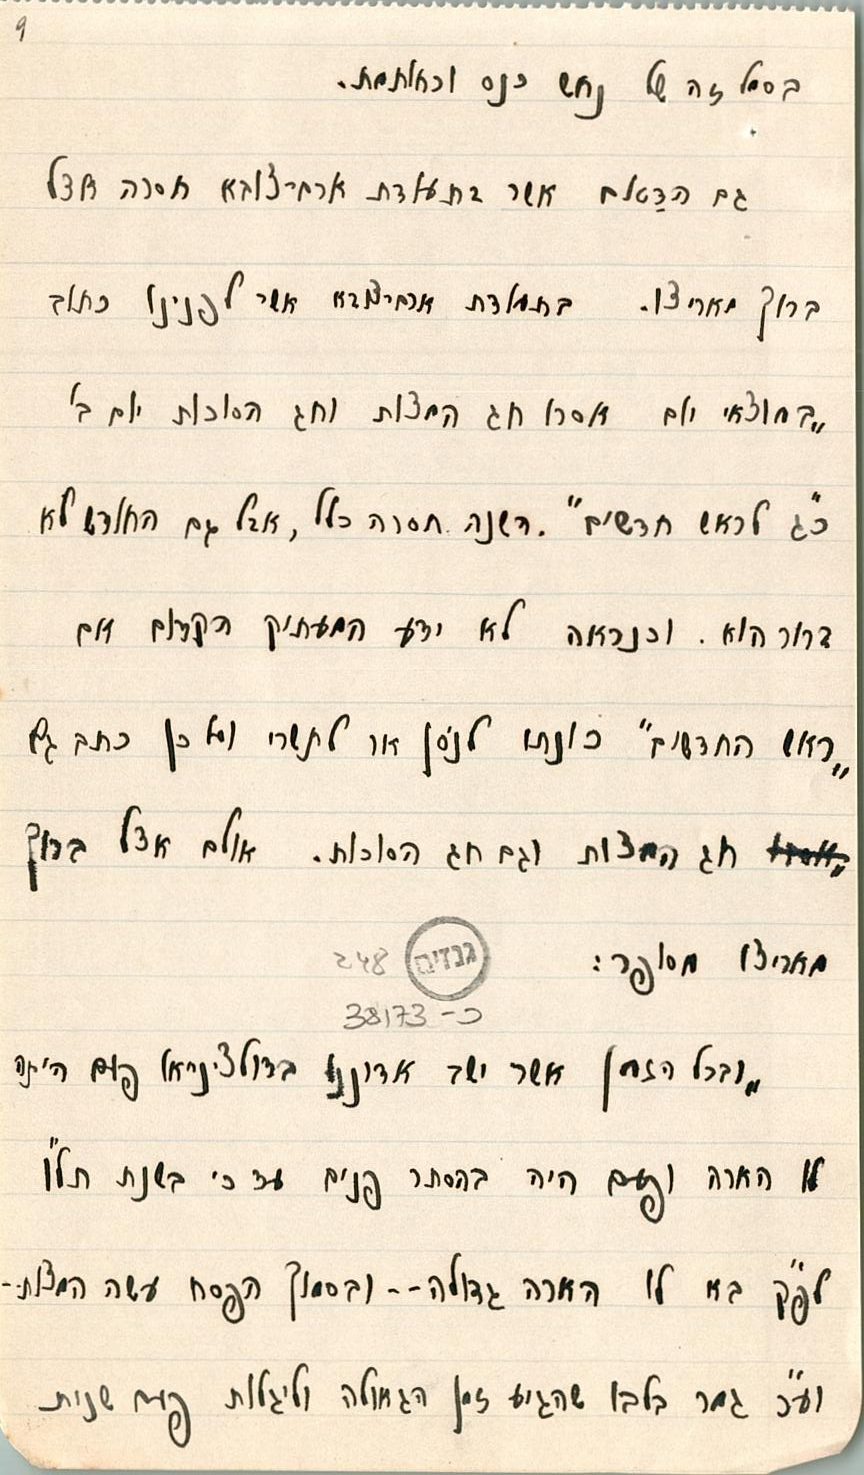 9
בסמל זה של נחש כנס וכחותמת.
גם הדַטום אשר בתעודת ארם־צובא חסרה אצל
ברוך מאריצו. בתעודת ארם־צובא אשר לפנינו כתוב
„במוצאי יום אסרו חג המצות וחג הסוכות יום ב'
כ"ג לראש חדשים". השנה חסרה כלל, אבל גם החודש לא
ברור הוא. וכנראה לא ידע המעתיק הקדום אם
„ראש החדשים" כונתו לניסן או לתשרי ועל כן כתב גם
חג המצות וגם חג הסוכות. אולם אצל ברוך
מאריצו מסופר:
גנזים
248
כ- 38173
„ובכל הזמן אשר ישב אדוננו בדולציניאו פעם היתה
לו הארה ופעם היה בהסתר פנים עד כי בשנת תל"ו
לפ"ק בא לו הארה גדולה-- ובסמוך הפסח עשה המצות--
וע"כ גמר בלבו שהגיע זמן הגאולה וליגלות פעם שנית